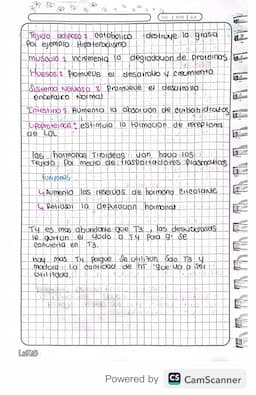 Tejido adiposo: catabolico - destruye la grasa
Por ejemplo Hipertiroidismo
Musculo: Incrementa la degradacion de proteinas
Huesos: Promueve el desarrollo y crecimiento
Sistema Nervioso: Promueve el desarrollo
encefalico normal
Intestino: Aumenta la absorcion de carbohidratos
Lipoproteinas: estimula la formacion de receptores
de LDL
las hormonas Tiroideas van hacia los
Tejido por medio de trasportadores plasmaticos
funciones
Aumenta las reservas de hormona circulante
Retrasa la depuracion hormonal
T4 es mas abundante que T3, las desyodasas
le quitan el yodo a T4 para q' se
convierta en T3.
hay mas T4 porque se utiliza solo T3 y
modula la cantidad de HT que va a ser
utilizada.
Powered by CS CamScanner